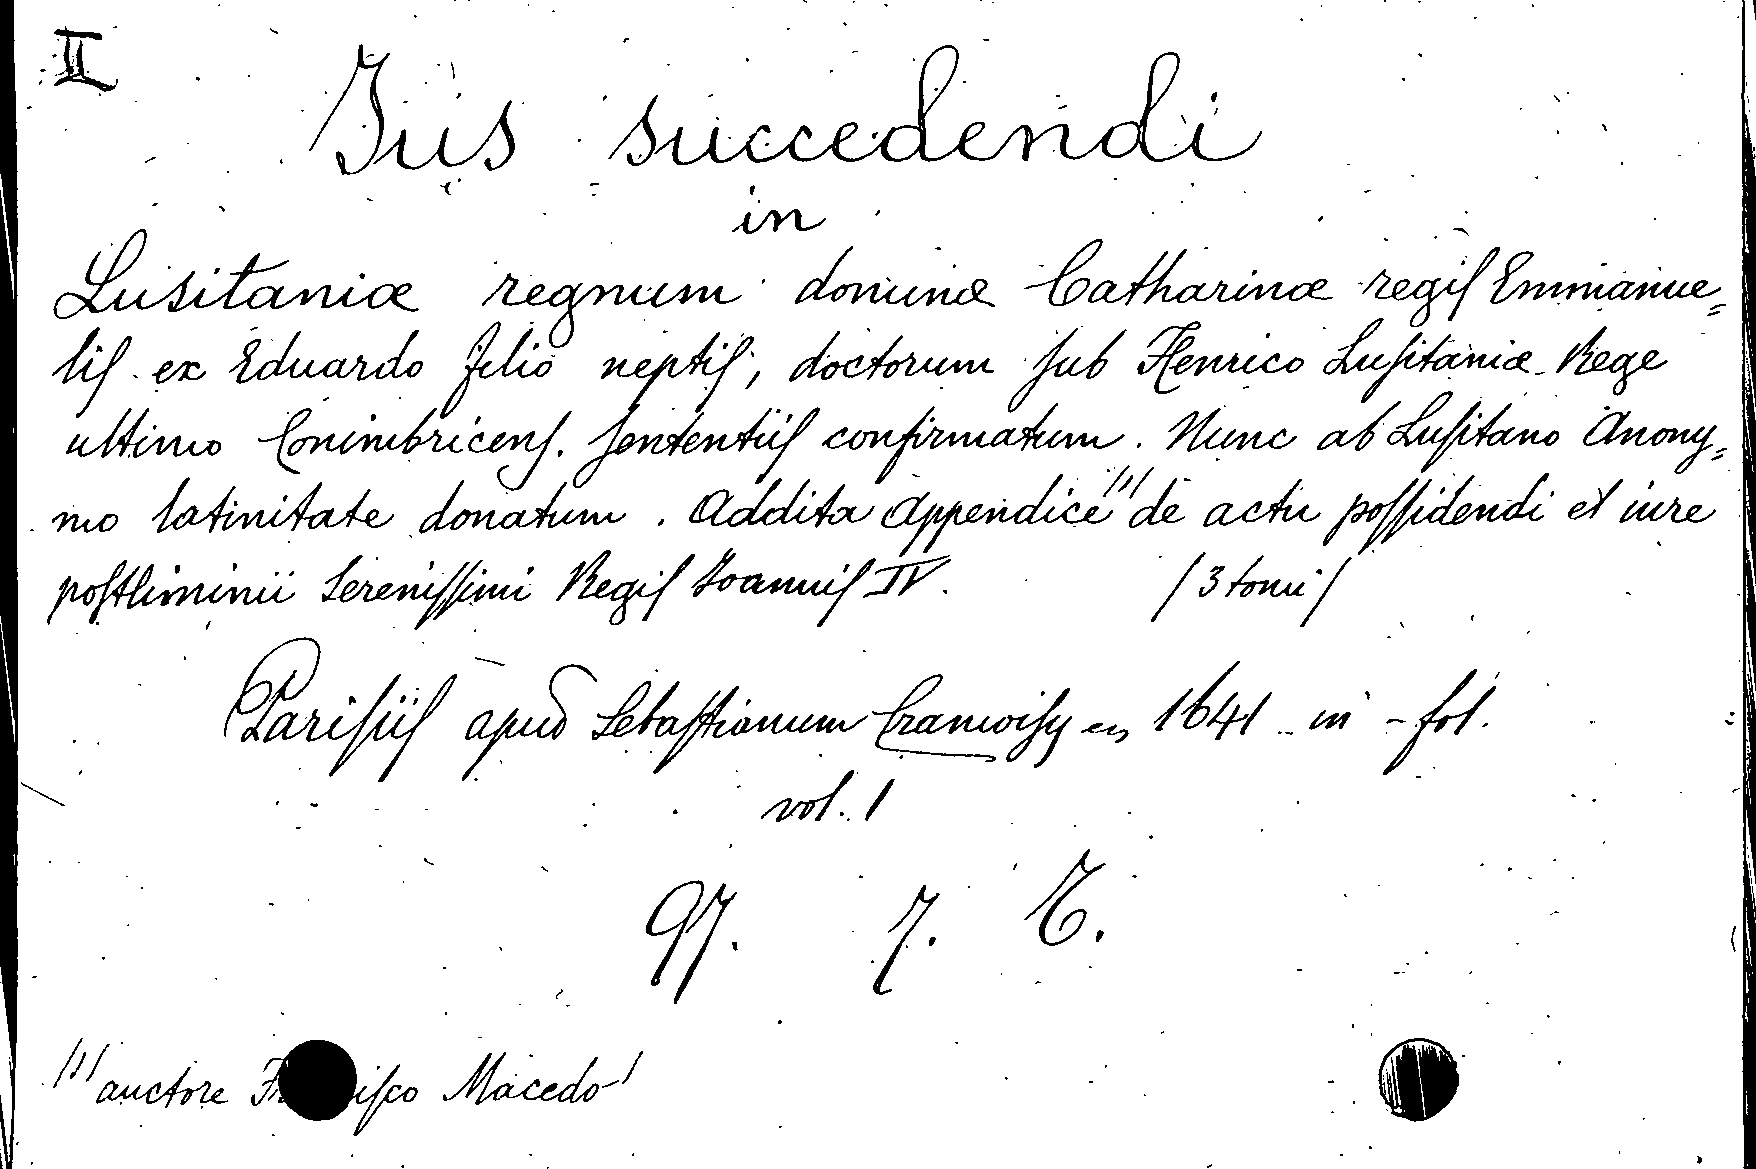 II
Jus succedendi
in
Lusitaniæ regnum dominæ Catharinæ regiſ Emmanue=
liſ ex Eduardo filio neptiſ, doctorum ſub Henrico Luſitaniæ Rege
ultimo Conimbricenſ. ſententiiſ confirmatum. Nunc ab Luſitano Anony=
mo latinitate donatum. Addita Appendice /1/ de actu poſſidendi et iure
poſtliminii Sereniſſimi Regiſ Joanniſ IV. /3 tomi/
Pariſiiſ apud Sebaſtianum Cramoiſy en 1641 in-fol.
vol. 1
97. 7. T.
/1/ auctore iſco Macedo